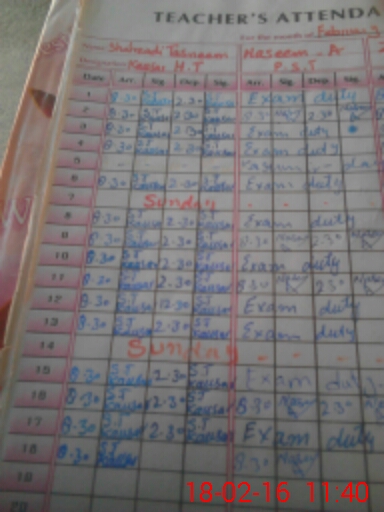 TEACHER'S ATTENDA
For the month of February
Name Shahzadi Tasneem Naseem . A
Designation Kausar H.T P.S.T
Date Arr. Sig. Dep. Sig. Arr. Sig. Dep. Sig.
1 8-30 S.T Kausar 2-30 S.T Kausar Exam duty
2 8-30 S.T Kausar 2-30 S.T Kausar 8.30 2.30
3 8-30 S.T Kausar 2-30 S.T Kausar Exam duty
4 8-30 S.T Kausar 2-30 S.T Kausar Exam duty
5 - - - - day
6 8-30 S.T Kausar 2-30 S.T Kausar Exam duty
7 Sunday - - - -
8 8-30 S.T Kausar 2-30 S.T Kausar Exam duty
9 8-30 S.T Kausar 2-30 S.T Kausar 8.30 2.30
10 8-30 S.T Kausar 2-30 S.T Kausar Exam duty
11 8-30 S.T Kausar 2-30 S.T Kausar 8.30 2.30
12 8-30 S.T Kausar 12-30 S.T Kausar Exam duty
13 8-30 S.T Kausar 2-30 S.T Kausar Exam duty
14 Sunday - - - -
15 8-30 S.T Kausar 2-30 S.T Kausar Exam duty
16 8-30 S.T Kausar 2-30 S.T Kausar 8.30 2.30
17 8-30 S.T Kausar 2-30 S.T Kausar Exam duty
18 8-30 S.T Kausar 8.30
19
20
18-02-16 11:40